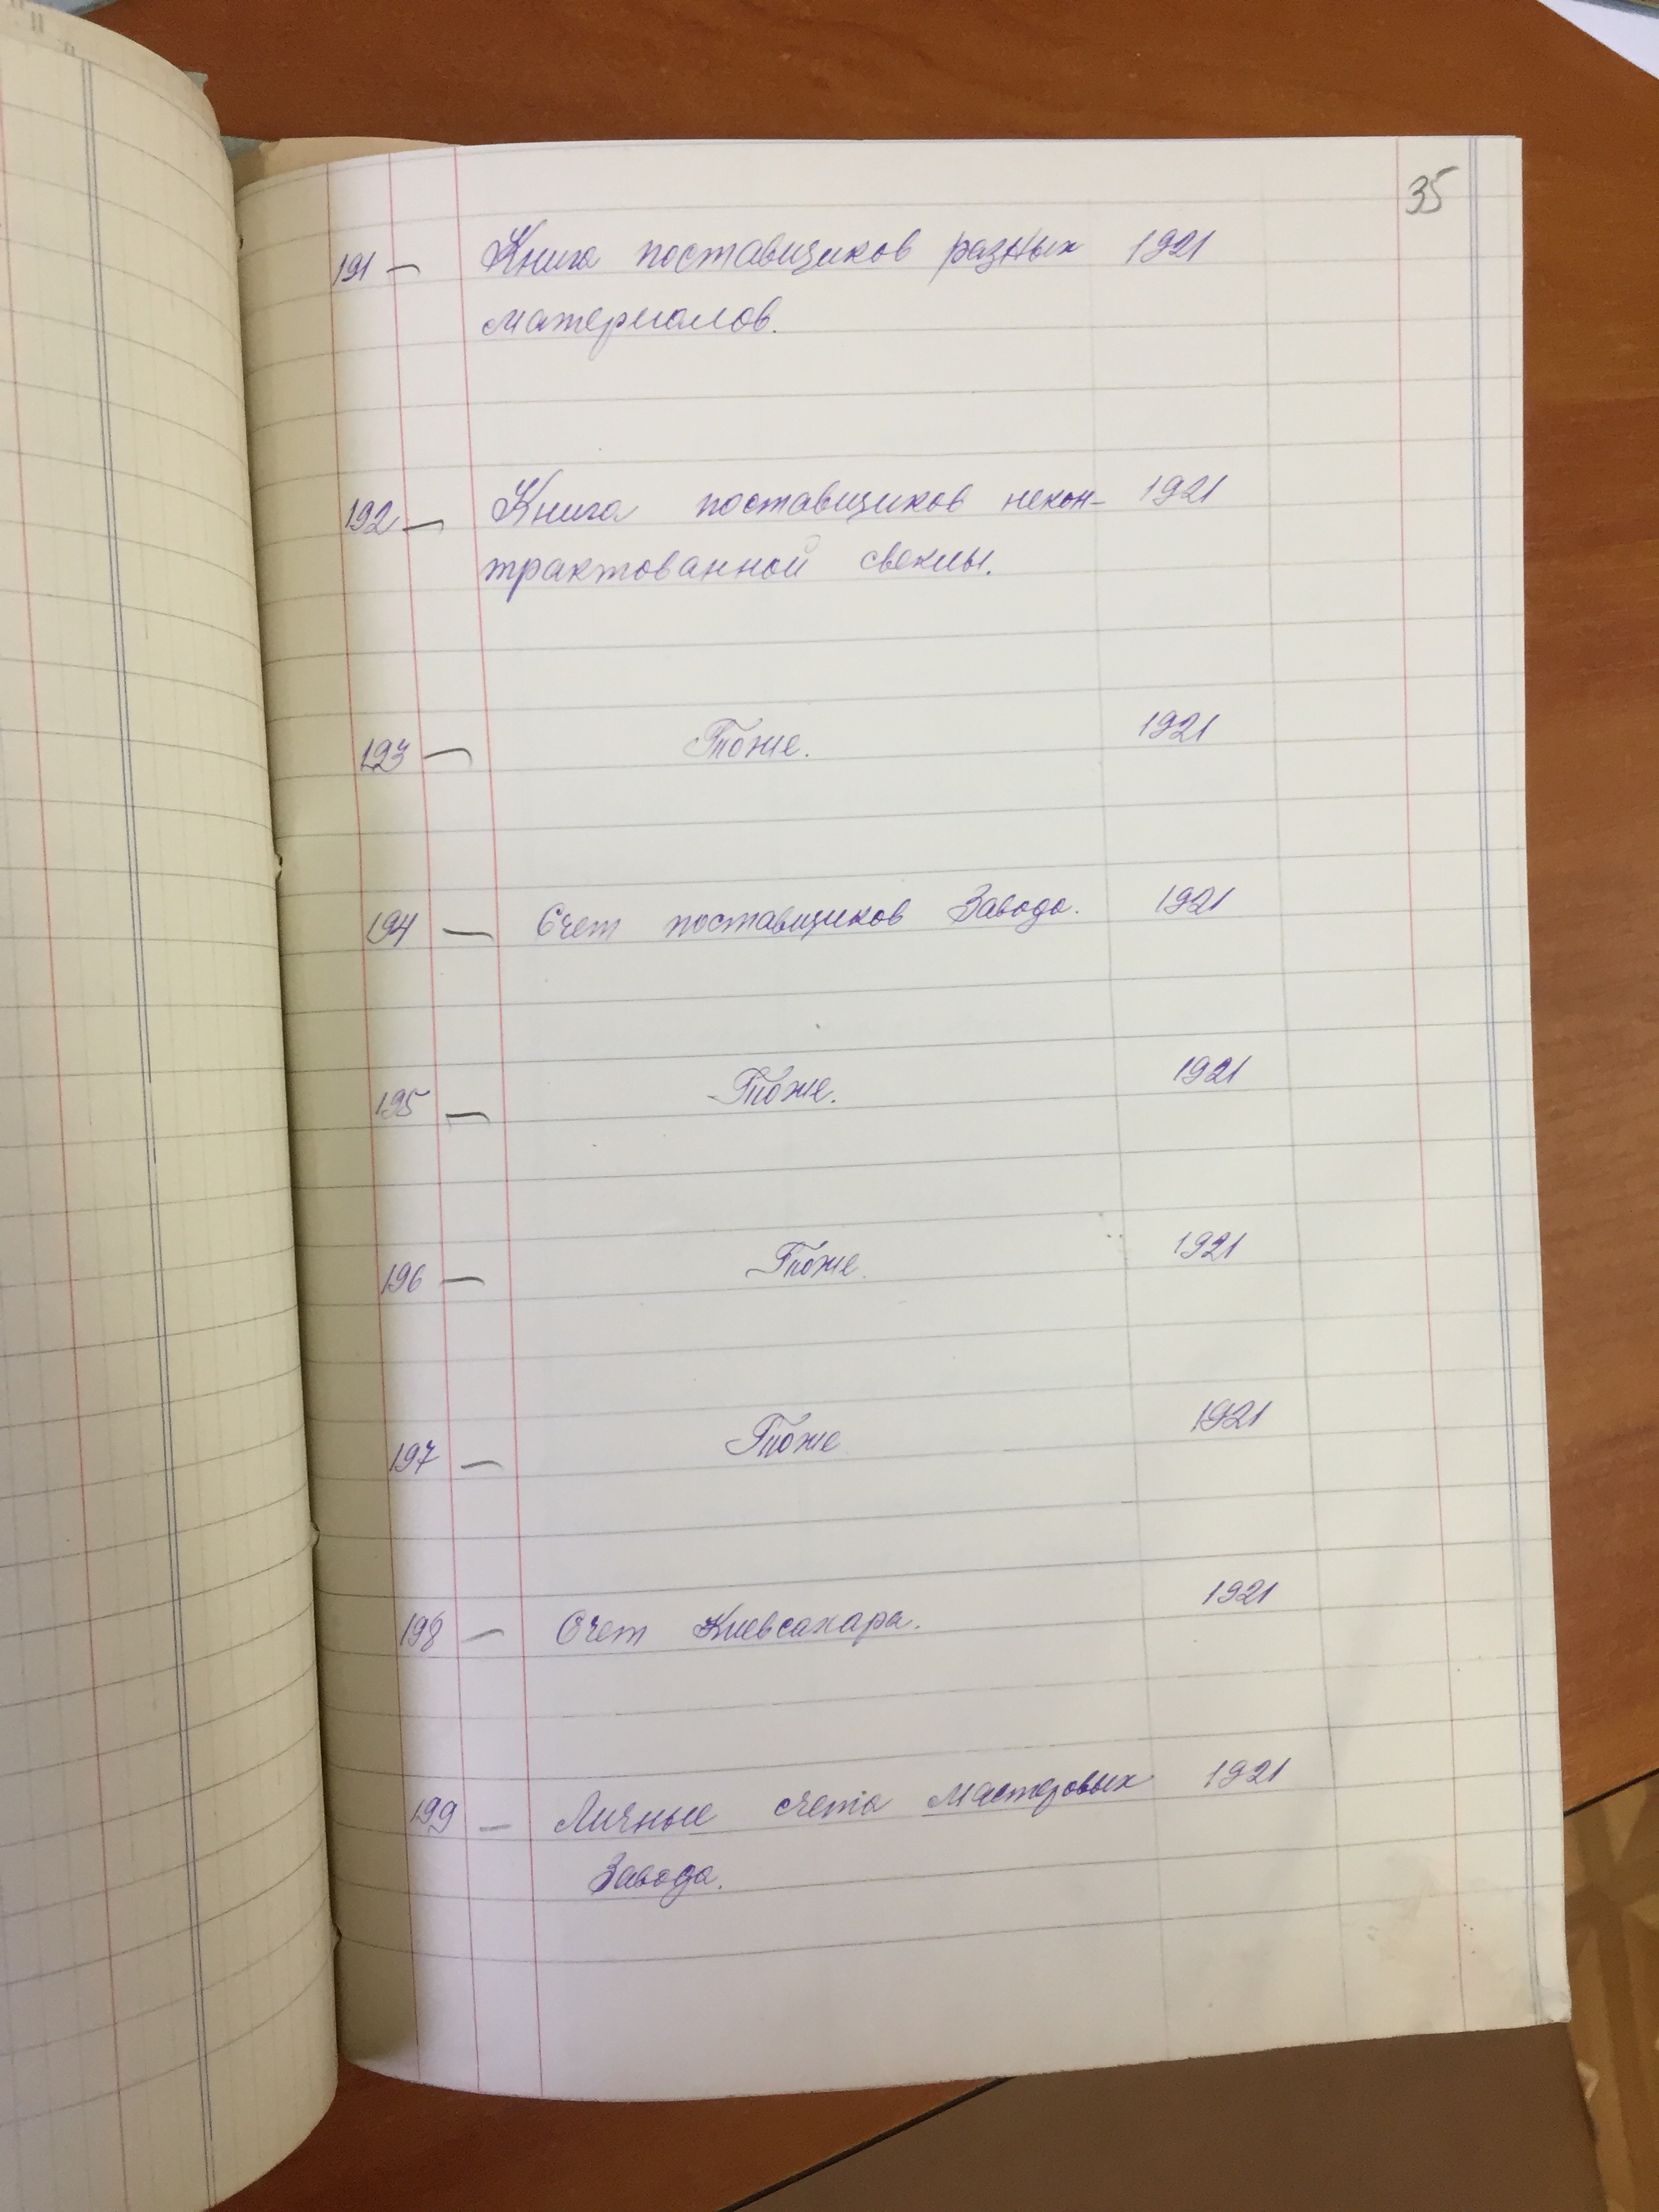 35
191 — Книга поставщиков разных 1921
материалов.
192 — Книга поставщиков некон- 1921
трактованной свеклы.
193 — Тоже. 1921
194 — Счет поставщиков Завода. 1921
195 — Тоже. 1921
196 — Тоже. 1921
197 — Тоже 1921
198 — Счет Киевсахара. 1921
199 — Личные счета мастеровых 1921
Завода.